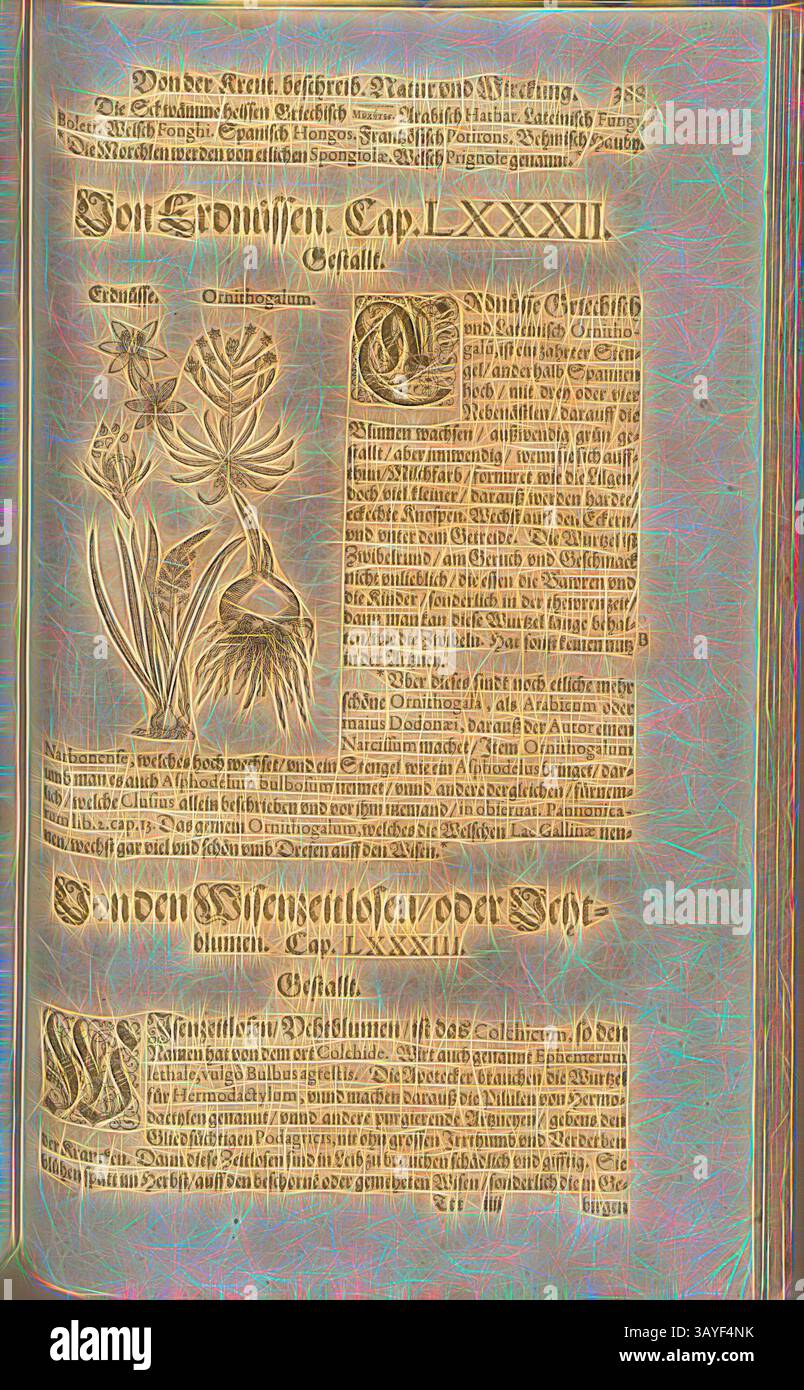 Von der Kreut. beschreib. Natur vnd Wirckung. 388
Die Schwämme heissen Griechisch Arabisch Hathar. Lateinisch Fungi
Boleti. Welsch Fonghi. Spanisch Hongos. Frantzösisch Potirons. Behmisch Hauby.
Die Morchlen werden von etlichen Spongiolæ. Welsch Prignole genannt.
Von Erdnüssen. Cap. LXXXII.
Gestallt.
Erdnüsse. Ornithogalum.
ERdnüsse Griechisch
vnd Lateinisch Ornitho-
galū, ist ein zahrter Sten-
gel/ anderhalb Spannen
hoch/ mit drey oder vier
Nebenästlen/ darauff die
Blumen wachsen/ außwendig grün ge-
stallt/ aber inwendig/ wenn sie sich auff-
thun/ Milchfarb/ formiret wie die Lilgen
doch viel kleiner/ darauß werden hardte/
eckechte Knospen. Wechst auff den Eckern/
vnd vnter dem Getreide. Die Wurtzel ist
Zwibelrund/ am Geruch vnd Geschmack
nicht vnlieblich/ die essen die Bawren vnd
die Kinder/ sonderlich in der thewren zeit/
dann man kan diese Wurtzel lange behal-
ten/ wie die Zwibeln. Hat sonst keinen nutz
in der Artzney.
B
Vber dieses sindt noch etliche mehr
schöne Ornithogala, als Arabicum oder
maius Dodonæi, darauß der Autor einen
Narcissum machet/ Item Ornithogalum
Narbonense, welches hoch wechset/ vnd ein Stengel wie ein Asphodelus bringet/ dar-
umb man es auch Asphodelum bulbosum nennet/ vnnd andere dergleichen/ fürnem-
lich/ welche Clusius allein beschrieben vnd vor ihm niemand/ in obseruat. Pannonica-
rum lib. 2. cap. 13. Das gemein Ornithogalum, welches die Welschen Lac Gallinæ nen-
nen/ wechst gar viel vnd schön vmb Dresen auff den Wisen.
Von den Wisenzeitlosen/ oder Vcht-
blumen. Cap. LXXXIII.
Gestallt.
WIsenzeitlosen/ Vchtblumen/ ist das Colchicum, so den
Namen hat von dem ort Colchide. Wirt auch genannt Ephemerum
lethale, vulgò Bulbus agrestis. Die Apotecker brauchen die Wurtzel
für Hermodactylum, vnnd machen darauß die Pillulen von Hermo-
dactylen genannt/ vnnd andere purgierende Artzneyen/ gebens den
Gliedsüchtigen Podagricis, nit ohn grossen Irrthumb vnd Verderben
der Krancken. Dann diese Zeitlosen sind in Leib zu brauchen schädlich vnd gifftig. Sie
blühen spätt im Herbst/ auff den beschorne oder gemeheten Wisen/ sonderlich die im Ge-
Ttt iiij birgen
alamy
Image ID: 3AYF4NK
www.alamy.com